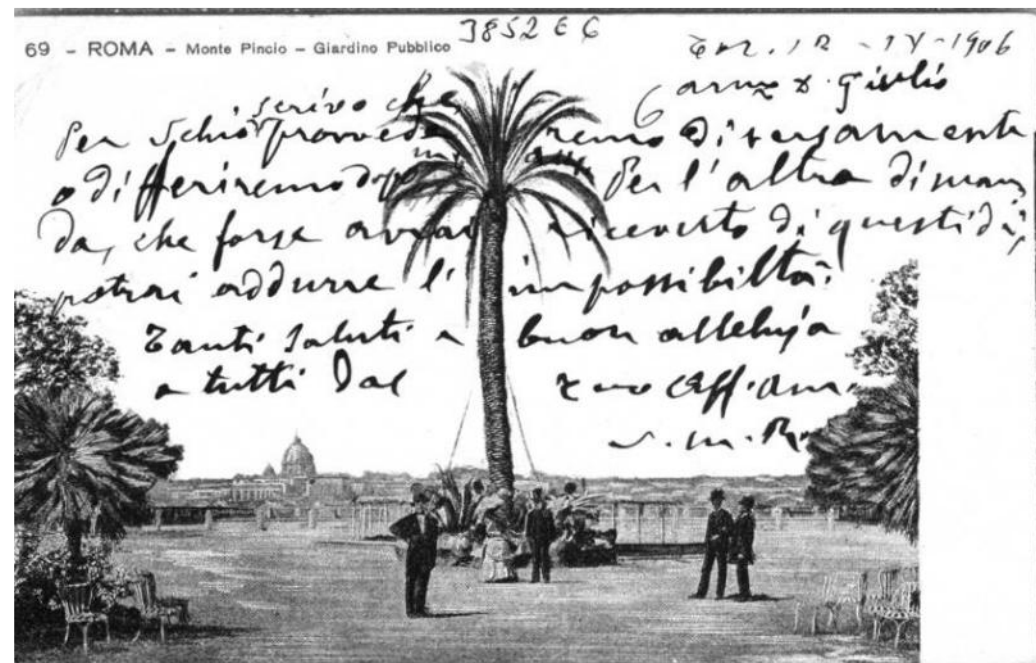 69 - ROMA - Monte Pincio - Giardino Pubblico
3852 E6
Tor. 12-IV-1906
Carmo D. Giulio
Per Schio scrivo che provvederemo diversamente
o differiremo dopo Per l'altra diman
da, che forse avrai ricevuto di questi dì,
potrai addurre l'impossibiltà.
Tanti saluti e buon alleluja
a tutti Dal tuo aff. am.
S. M. R.